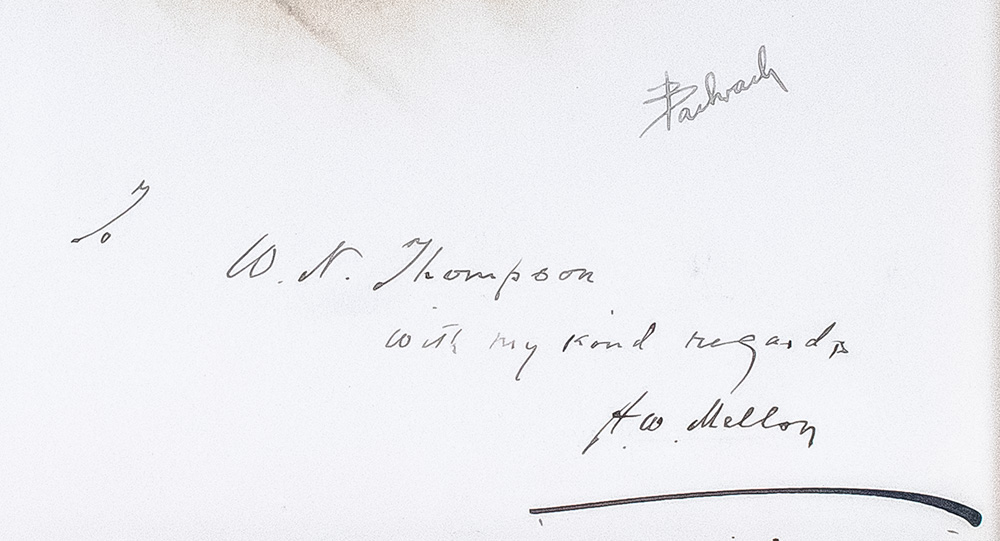 Bachrach
To
W. N. Thompson
with my kind regards
A. W. Mellon